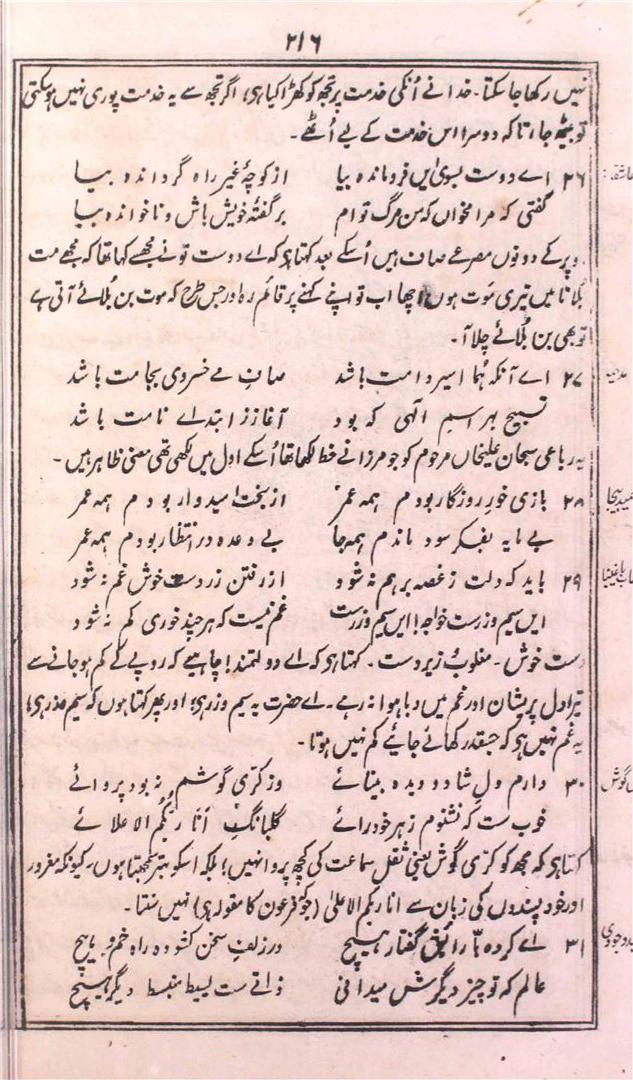 ۲۱۶
نہیں رکھا جا سکتا۔ خدا نے اُنکی خدمت پر تجھ کو کھڑا کیا ہی؛ اگر تجھ سے یہ خدمت پوری نہیں ہو سکتی
تو بیٹھ جا، تا کہ دوسرا اس خدمت کے لیے اُٹھے۔
۲۶ اے دوست بسوی ایں فروماندہ بیا از کوچۂ غیر راہ گرداندہ بیا
گفتی کہ مرا مخواں کہ من مرگ توام برگفتۂ خویش باش و ناخواندہ بیا
اوپر کے دونوں مصرعے صاف ہیں اُسکے بعد کہتا ہی کہ اے دوست تو نے مجھسے کہا تھا کہ مجھے مت
بُلانا میں تیری موت ہوں؛ اچھا اب تو اپنے کہنے پر قائم رہ اور جس طرح کہ موت بن بُلائے آتی ہے
تو بھی بن بُلائے چلا آ۔
۲۷ اے آنکہ ہُما اسیر دامت باشد صافِ مے خسروی بجامت باشد
تسبیح بہر اسم الٰہی کہ بود آغاز ز ابتدائے نامت باشد
یہ رباعی سبحان علیخاں مرحوم کو جو مرزا نے خط لکھا تھا اُسکے اول میں لکھی تھی معنی ظاہر ہیں۔
۲۸ بازی خورِ روزگار بودم ہمہ عمر از بخت امیدوار بودم ہمہ عمر
بے مایہ بفکر سود ماندم ہمہ جا بے وعدہ در انتظار بودم ہمہ عمر
۲۹ باید کہ دلت ز غصہ برہم نہ شود از رفتن زر دست خوش غم نہ شود
ایں سیم و زرست خواجہ! ایں سیم و زرست غم نیست کہ ہر چند خوری کم نہ شود
دست خوش۔ مغلوب و زیردست۔ کہتا ہی کہ اے دولتمند! چاہیے کہ روپے کے کم ہو جانے سے
تیرا دل پریشان اور غم میں دبا ہوا نہ رہے۔ اے حضرت یہ سیم و زر ہی؛ اور پھر کہتا ہوں کہ سیم و زر ہی؛
یہ غم نہیں ہی کہ جسقدر کھائے جائیے کم نہیں ہوتا۔
۳۰ دارم دلِ شاد و دیدہ بینائے وز کرّی گوشم نہ بود پروائے
خوب ست کہ نشنوم ز ہر خودرائے گلبانگِ اَنَا رَبُّکُمُ الاعلائے
کہتا ہی کہ مجھ کو کرّی گوش یعنی ثقل سماعت کی کچھ پروا نہیں؛ بلکہ اسکو بہتر سمجھتا ہوں۔ کیونکہ مغرور
اور خود پسندوں کی زبان سے انا ربکم الاعلیٰ (جو فرعون کا مقولہ ہی) نہیں سنتا۔
۳۱ اے کردہ بآرایش گفتار بسیچ در زلفِ سخن کشودہ راہ خم و پیچ
عالم کہ تو چیز دیگرش میدانی ذاتے ست بسیط منبسط دیگر ہیچ